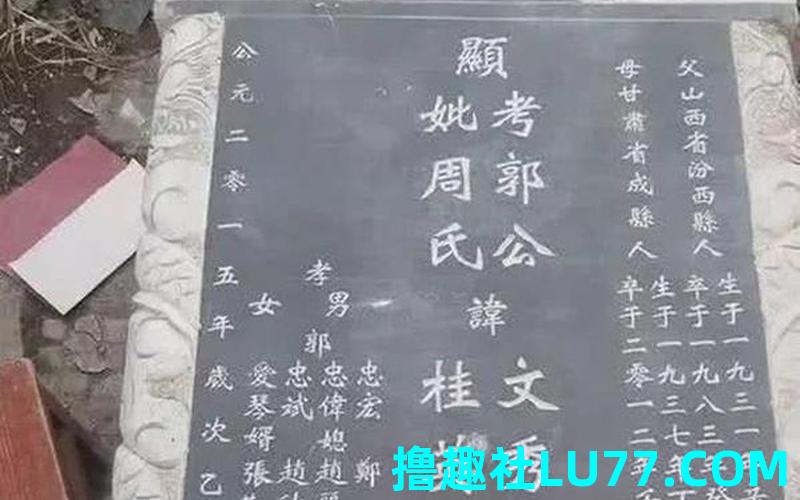 父山西省汾西縣人
生于一九三一年
卒于一九八三年
母甘肅省成縣人
生于一九三七年
卒于二零一二年
顯
考郭公
妣周氏
諱
文
桂
孝男
郭
忠宏 鄭
忠偉媳趙
忠斌 趙
女
愛琴婿張
公元二零一五年歲次乙
撸趣社LU77.COM